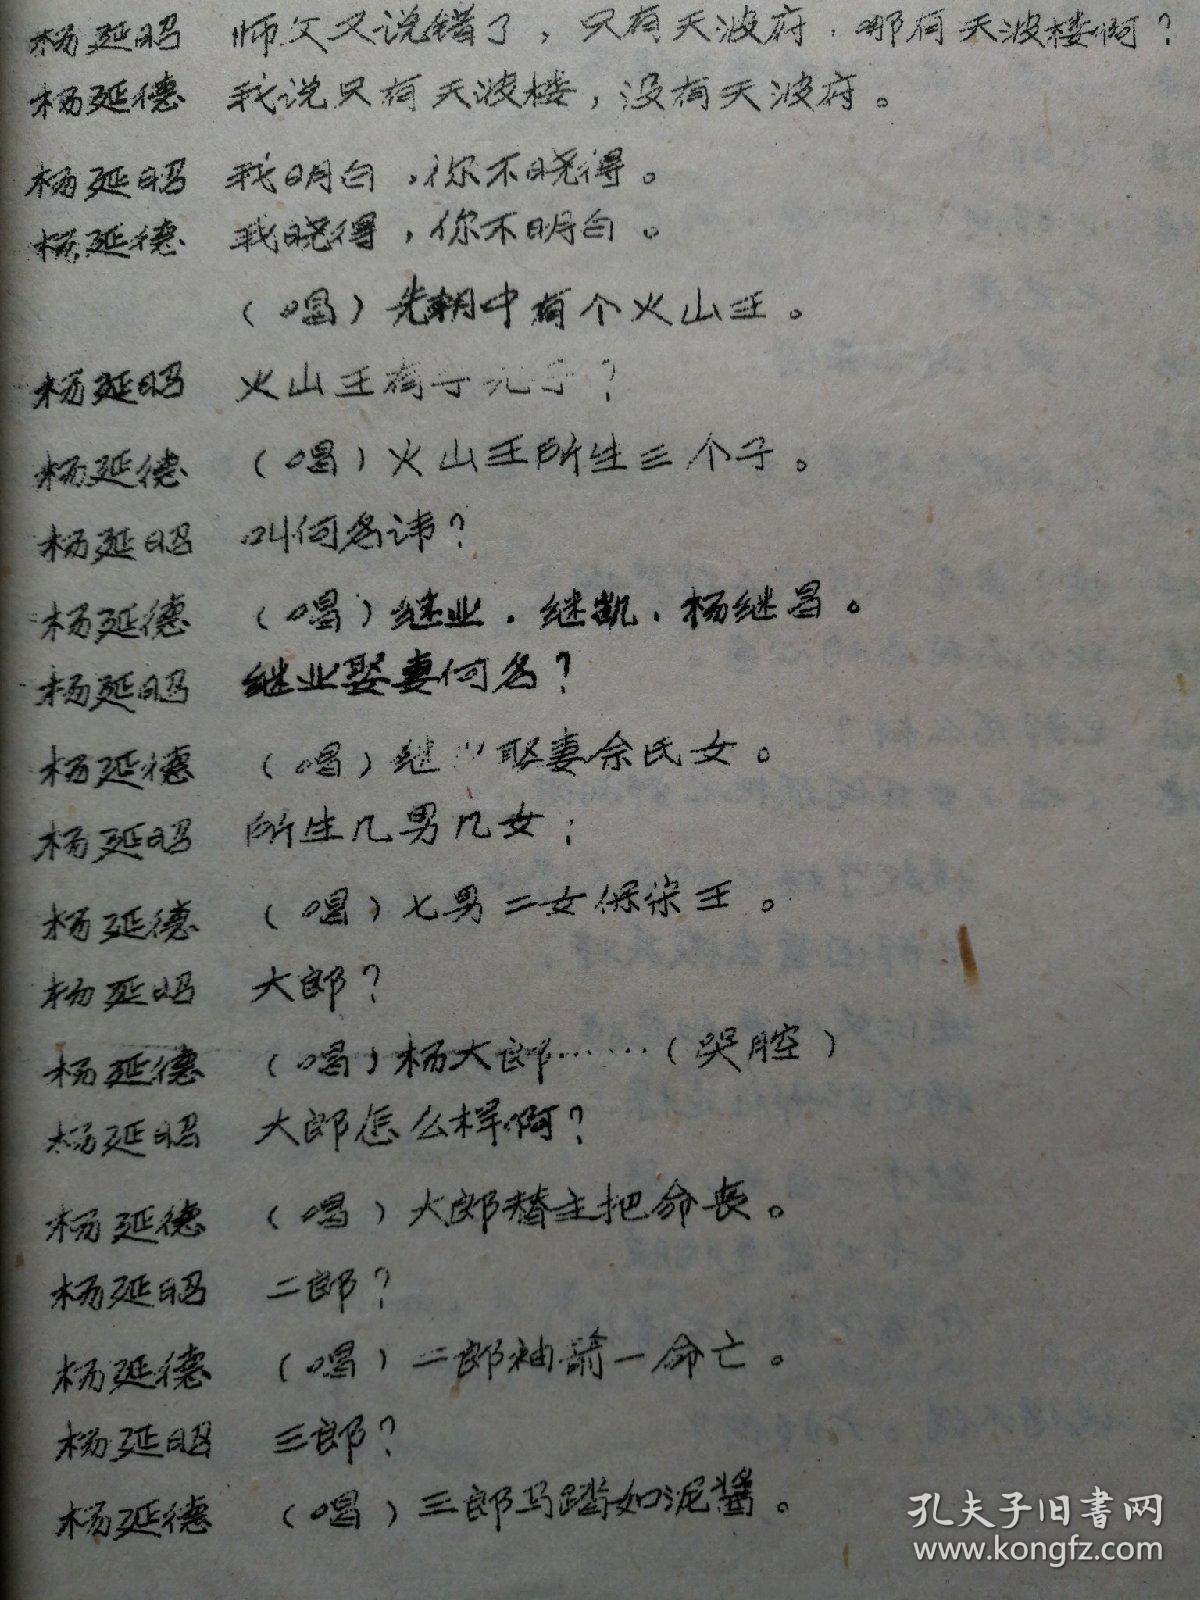 杨延昭 师父又说错了，只有天波府，哪有天波楼啊？
杨延德 我说只有天波楼，没有天波府。
杨延昭 我明白，你不晓得。
杨延德 我晓得，你不明白。
（唱）先朝中有个火山王。
杨延昭 火山王有子无子？
杨延德 （唱）火山王所生三个子。
杨延昭 叫何名讳？
杨延德 （唱）继业．继凯．杨继昌。
杨延昭 继业娶妻何名？
杨延德 （唱）继业娶妻佘氏女。
杨延昭 所生几男几女；
杨延德 （唱）七男二女保宋王。
杨延昭 大郎？
杨延德 （唱）杨大郎……（哭腔）
杨延昭 大郎怎么样啊？
杨延德 （唱）大郎替主把命丧。
杨延昭 二郎？
杨延德 （唱）二郎袖箭一命亡。
杨延昭 三郎？
杨延德 （唱）三郎马踏如泥酱。
孔夫子旧書网
www.kongfz.com